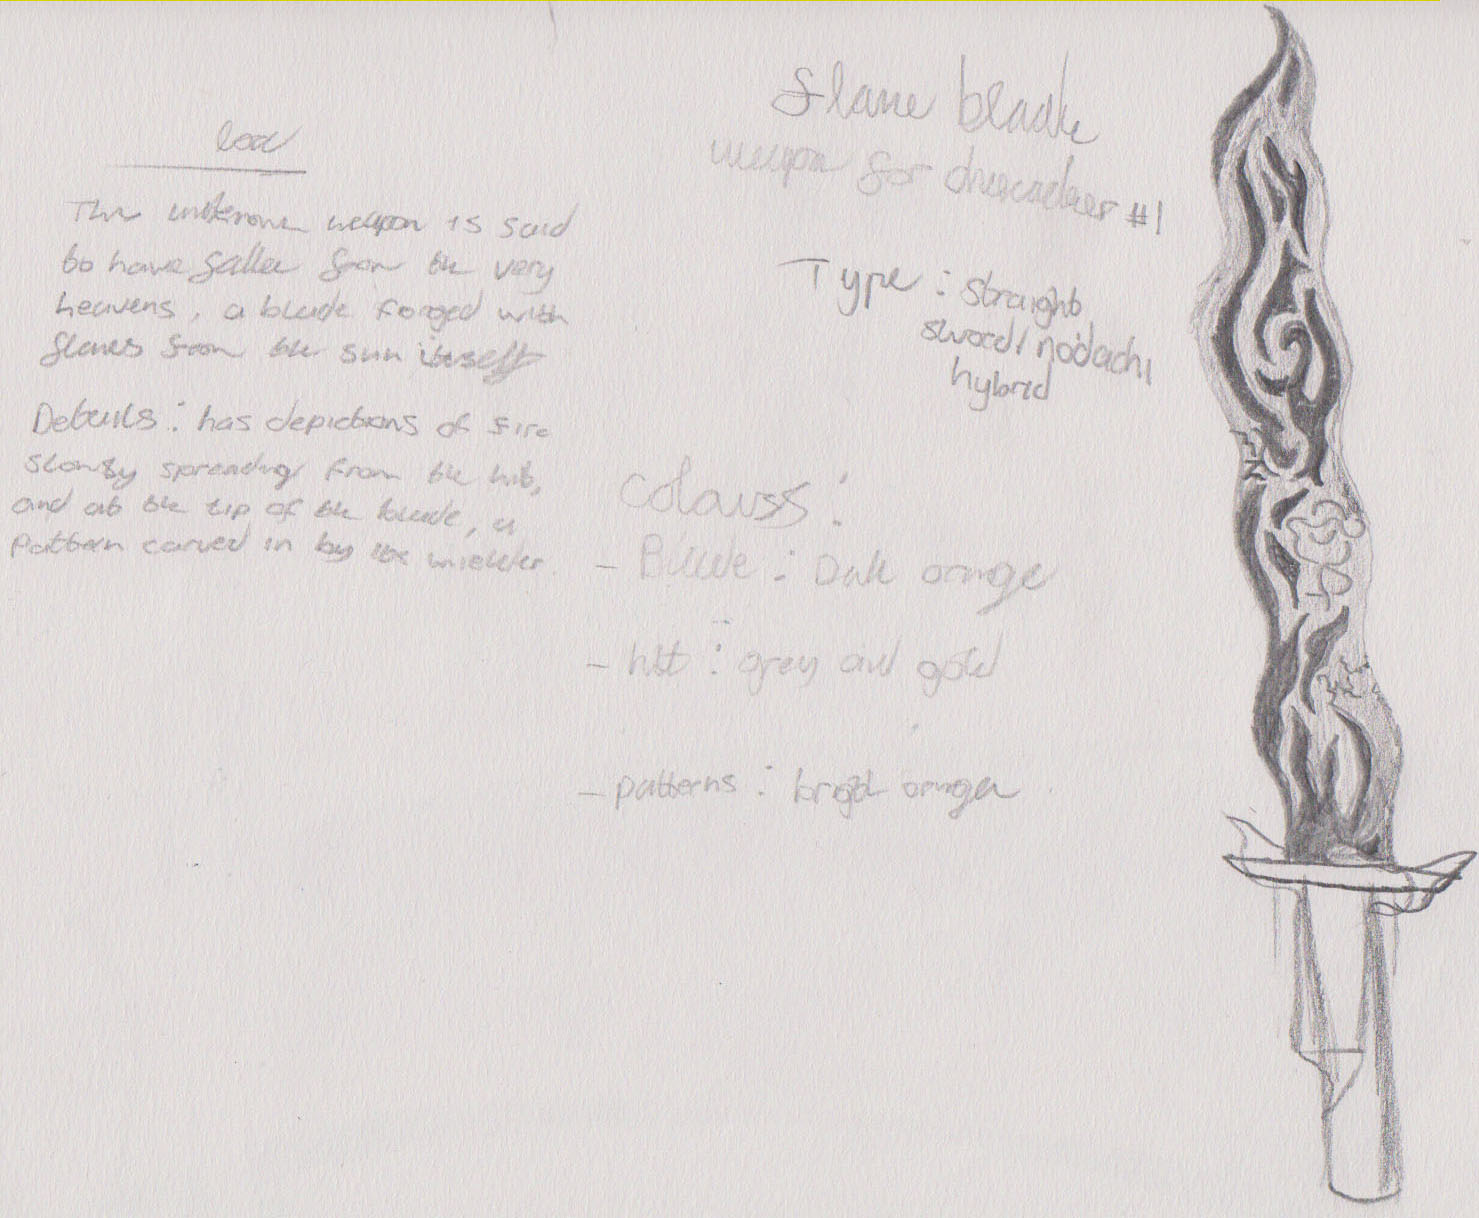 flame blade
weapon for character #1
Type : straight
sword/nodachi
hybrid
lore
The unknown weapon is said
to have fallen from the very
heavens, a blade forged with
flames from the sun itself
Details : has depictions of fire
slowly spreading from the hilt,
and at the tip of the blade, a
pattern carved in by the wielder.
colours :
- Blade : Dark orange
- hilt : grey and gold
- patterns : bright orange